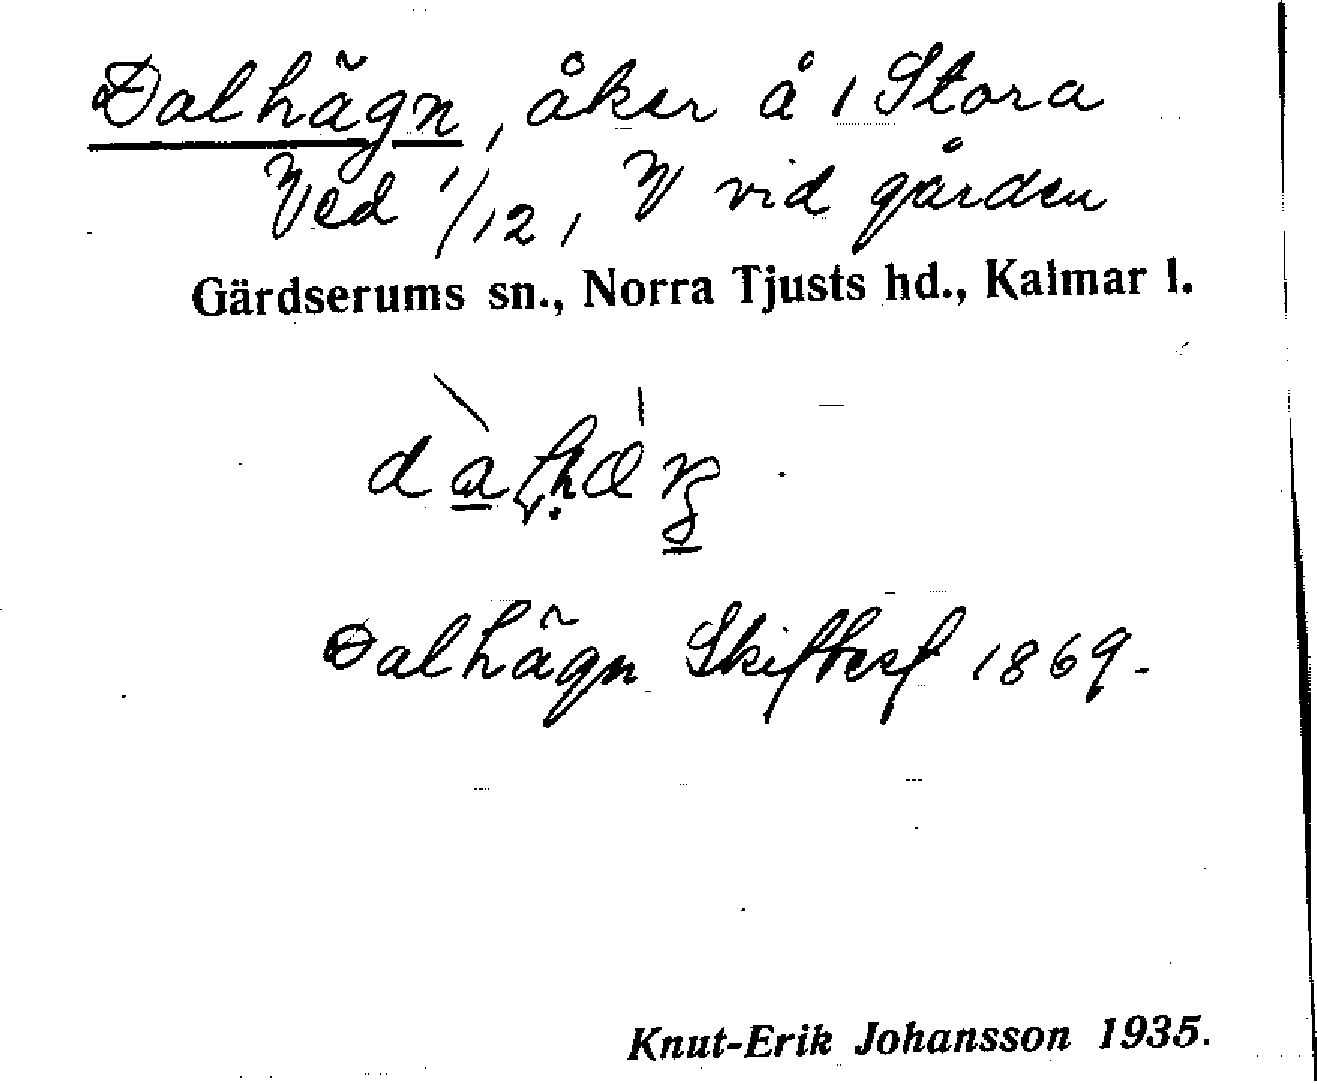 Dalhägn, åker å 1 Stora
Ved 1/12, V vid gården
Gärdserums sn., Norra Tjusts hd., Kalmar l.
Dalhägn Skiftesf 1869.
Knut-Erik Johansson 1935.